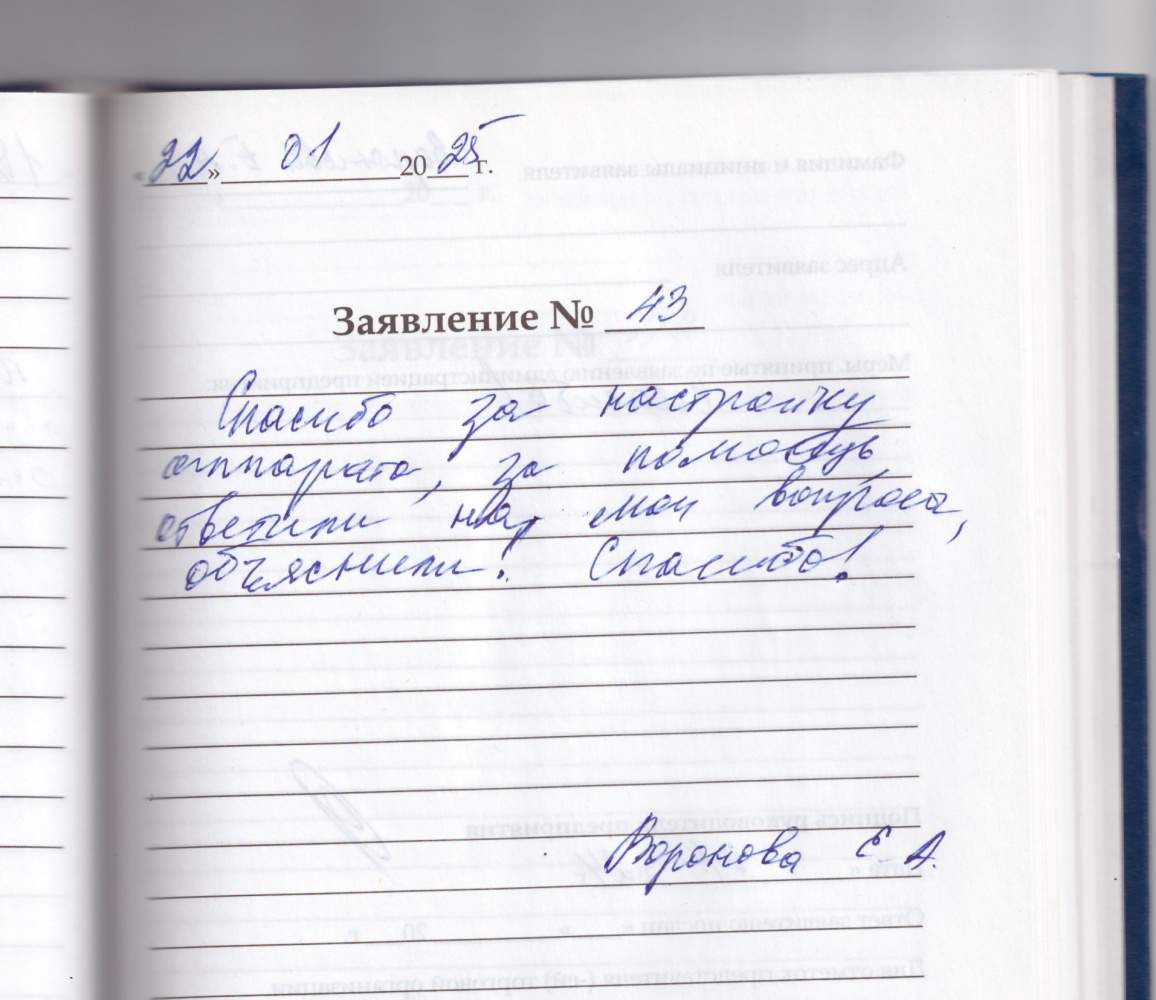 «22» 01 2025 г.
Заявление № 43
Спасибо за настройку
аппарата, за помощь,
ответили на мои вопросы,
объяснили! Спасибо!
Воронова Е. А.